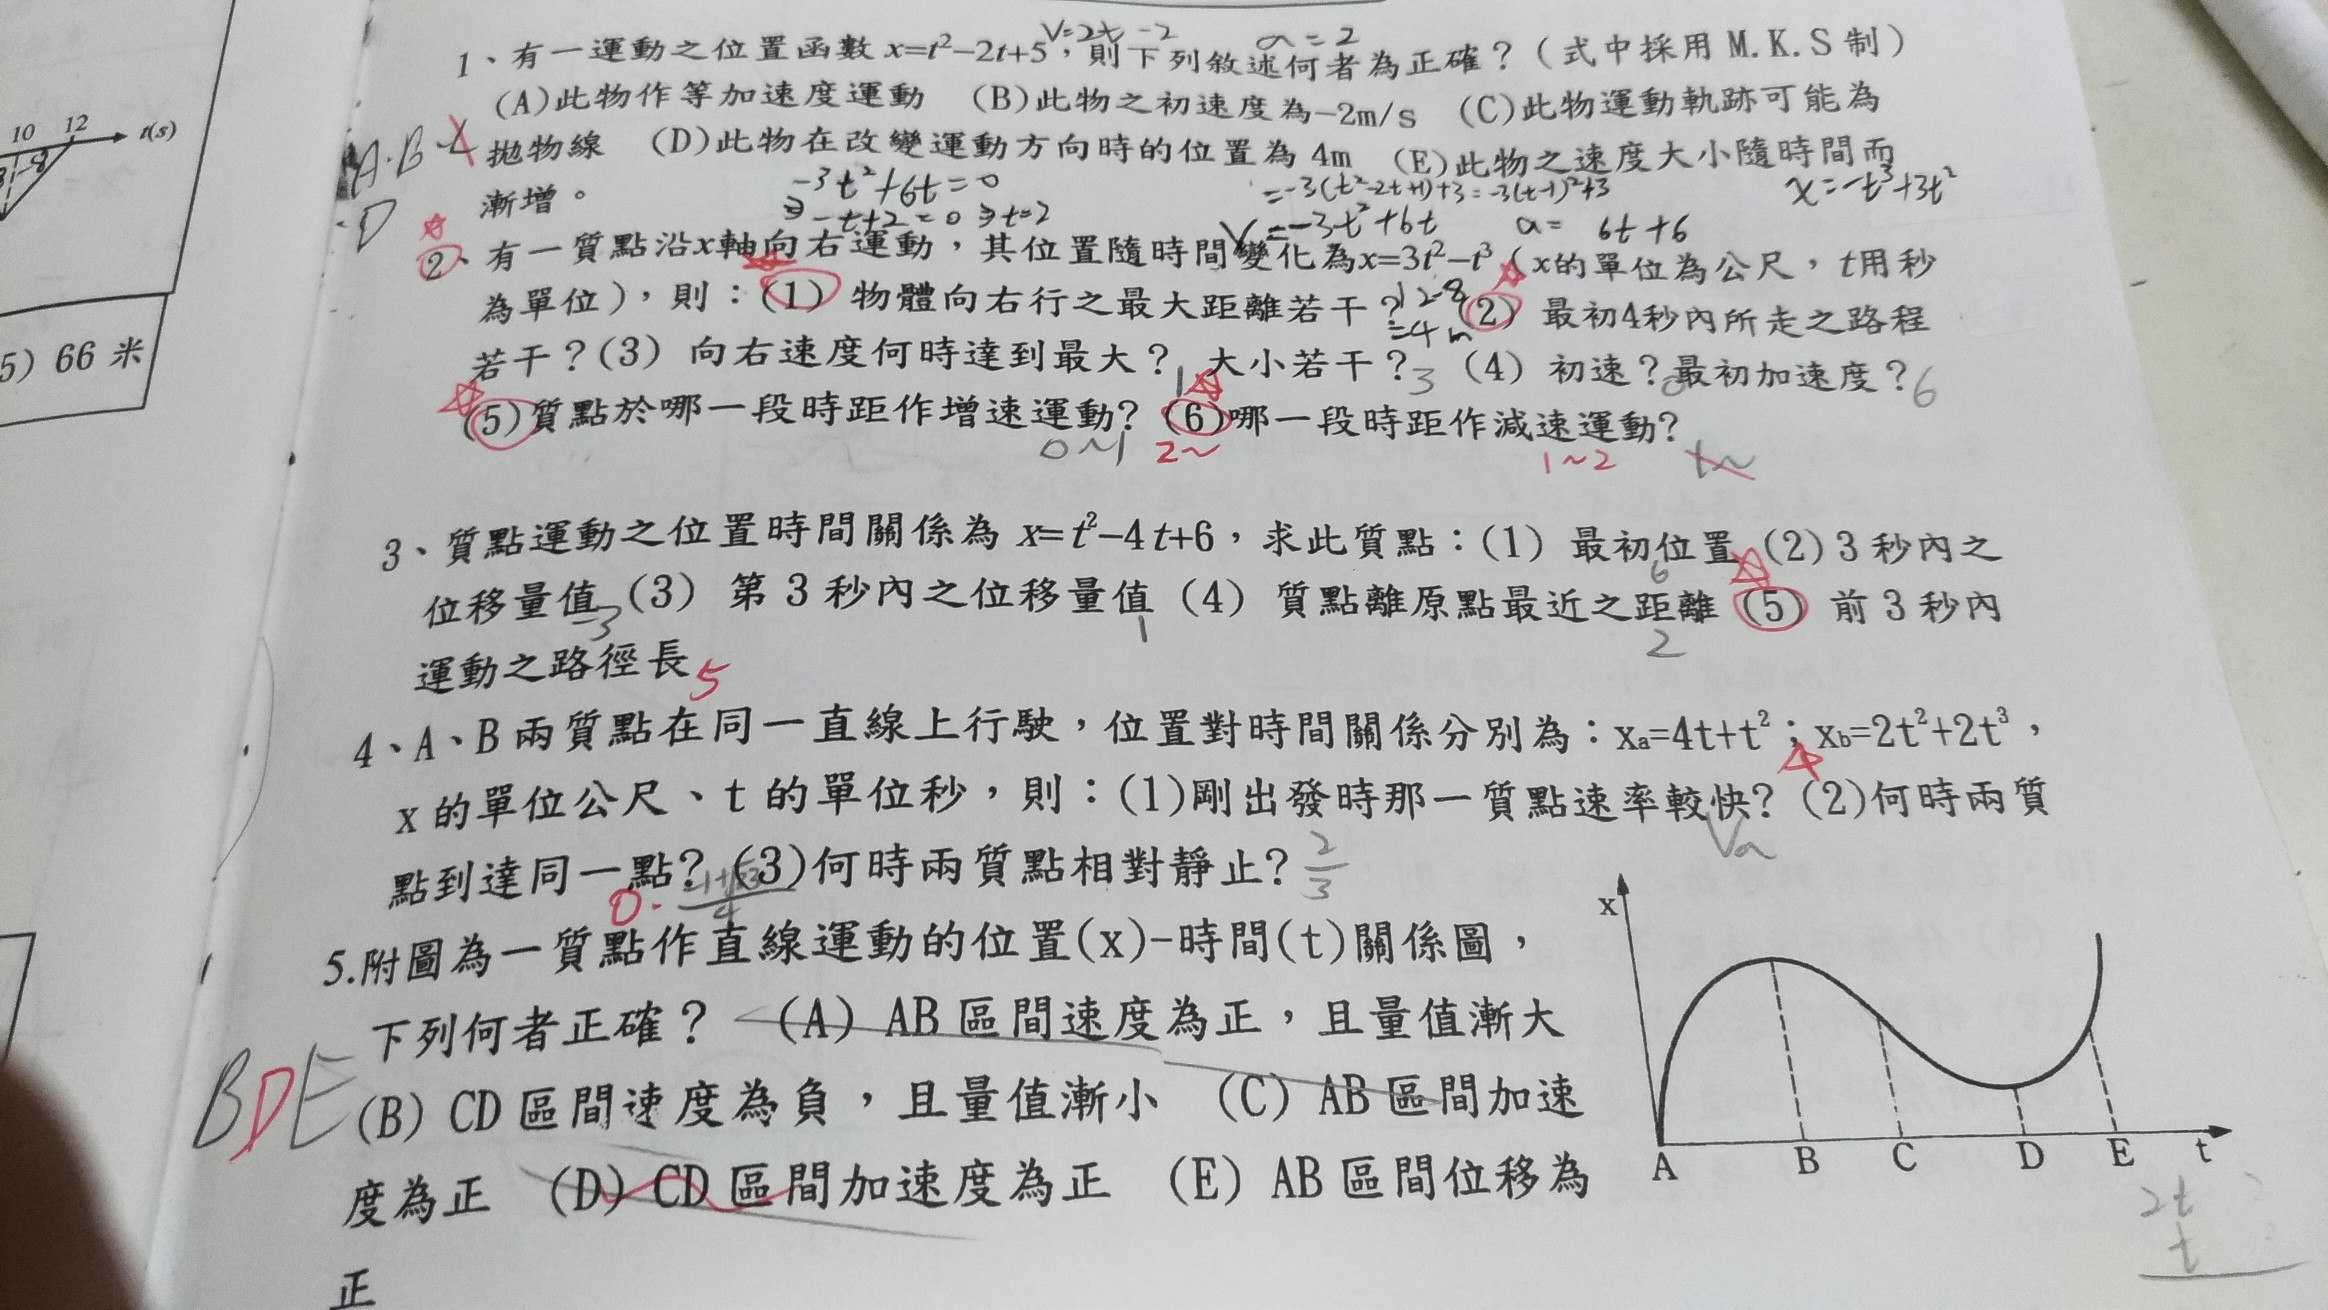 10 12 t(s)
5) 66 米
V=2t-2 a=2
1、有一運動之位置函數 x=t²-2t+5，則下列敘述何者為正確？（式中採用 M.K.S 制）
(A)此物作等加速度運動 (B)此物之初速度為-2m/s (C)此物運動軌跡可能為
A.B
拋物線 (D)此物在改變運動方向時的位置為 4m (E)此物之速度大小隨時間而
漸增。
D
-3t²+6t=0 =-3(t²-2t+1)+3=-3(t-1)²+3 x=-t³+3t²
⇒-t+2=0 ⇒t=2 V=-3t²+6t a= 6t+6
2、有一質點沿x軸向右運動，其位置隨時間變化為x=3t²-t³（x的單位為公尺，t用秒
為單位），則：(1) 物體向右行之最大距離若干？(2) 最初4秒內所走之路程
12-8
=4m
若干？(3) 向右速度何時達到最大？大小若干？(4) 初速？最初加速度？
1 3 0 6
(5)質點於哪一段時距作增速運動？(6)哪一段時距作減速運動？
0~1 2~ 1~2 t~
3、質點運動之位置時間關係為 x=t²-4t+6，求此質點：(1) 最初位置 (2) 3 秒內之
6
位移量值 (3) 第 3 秒內之位移量值 (4) 質點離原點最近之距離 (5) 前 3 秒內
-3 1 2
運動之路徑長
5
4、A、B 兩質點在同一直線上行駛，位置對時間關係分別為：xa=4t+t²；xb=2t²+2t³，
x 的單位公尺、t 的單位秒，則：(1)剛出發時那一質點速率較快？(2)何時兩質
Va
點到達同一點？(3)何時兩質點相對靜止？
2/3
0.
5.附圖為一質點作直線運動的位置(x)-時間(t)關係圖，
下列何者正確？ (A) AB 區間速度為正，且量值漸大
BDE
(B) CD 區間速度為負，且量值漸小 (C) AB 區間加速
度為正 (D) CD 區間加速度為正 (E) AB 區間位移為
正
x
A B C D E t
2t
t